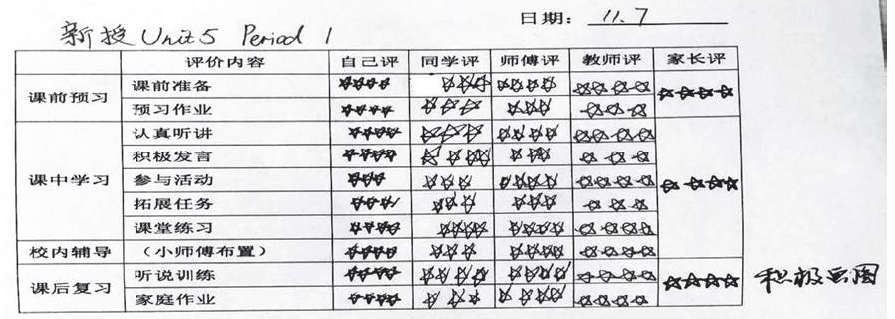 日期： 11.7
新授 Unit 5 Period 1
评价内容 自己评 同学评 师傅评 教师评 家长评
课前预习 课前准备 ☆☆☆☆ ☆☆☆ ☆☆☆☆ ☆☆☆☆ ☆☆☆☆
预习作业 ☆☆☆☆ ☆☆☆ ☆☆☆ ☆☆☆
课中学习 认真听讲 ☆☆☆☆ ☆☆☆ ☆☆☆☆ ☆☆☆☆ ☆☆☆☆
积极发言 ☆☆☆☆ ☆☆☆☆ ☆☆☆ ☆☆☆
参与活动 ☆☆☆ ☆☆☆ ☆☆☆☆ ☆☆☆☆
拓展任务 ☆☆☆☆ ☆☆☆ ☆☆☆ ☆☆☆
课堂练习 ☆☆☆☆ ☆☆☆☆ ☆☆☆☆ ☆☆☆☆
校内辅导 （小师傅布置） ☆☆☆☆ ☆☆☆ ☆☆☆☆ ☆☆☆☆
课后复习 听说训练 ☆☆☆☆ ☆☆☆☆ ☆☆☆☆ ☆☆☆☆ ☆☆☆☆ 积极
家庭作业 ☆☆☆☆ ☆☆☆ ☆☆☆☆ ☆☆☆☆